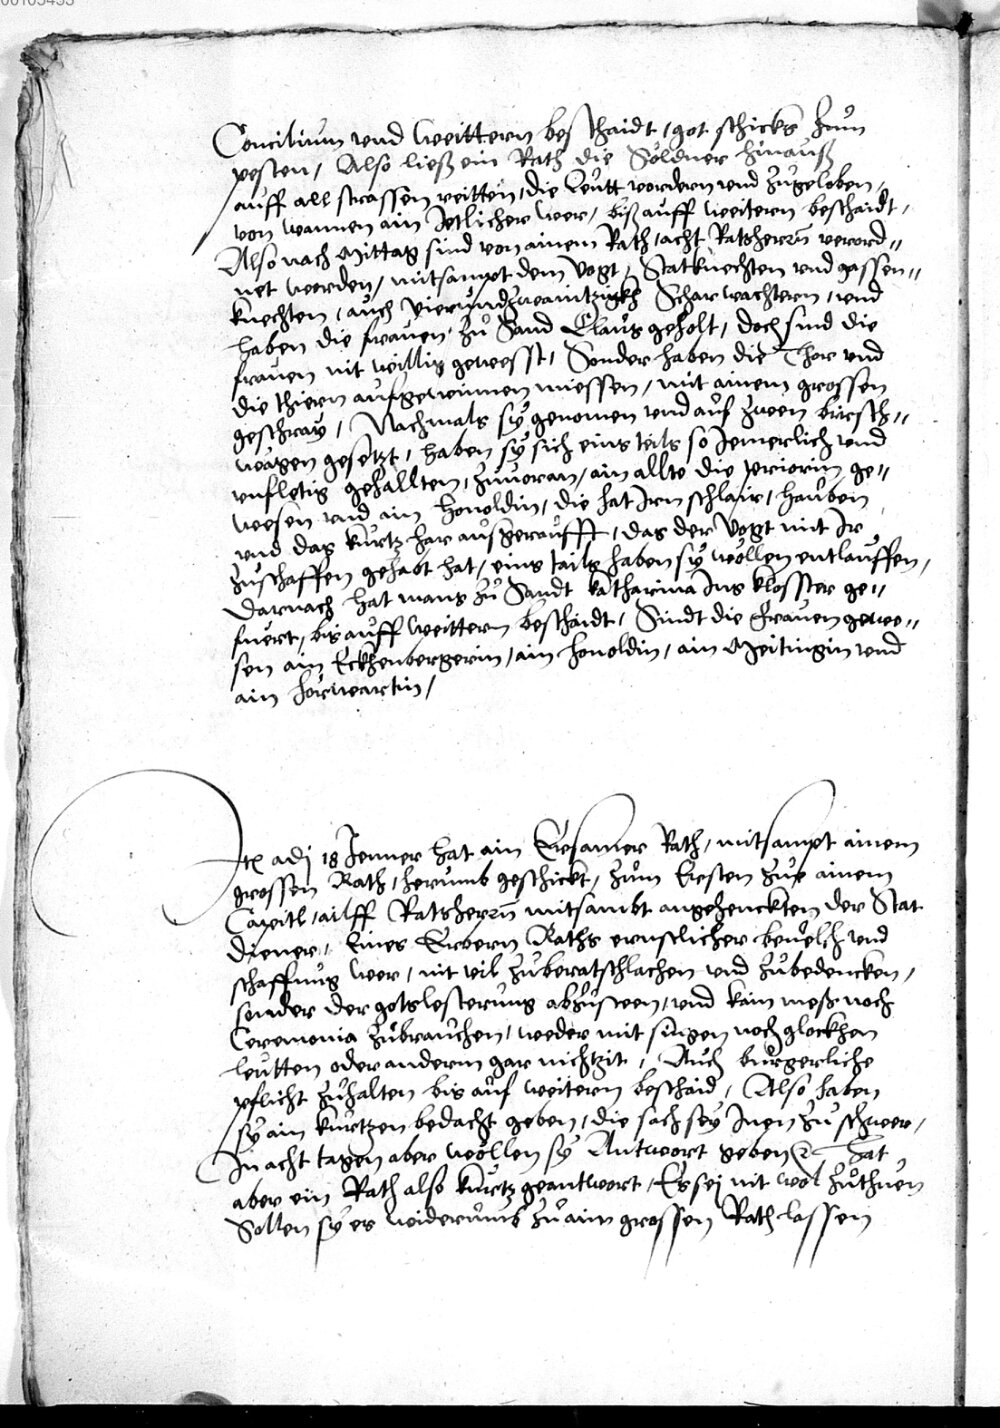 Concilium und weittern beschaidt, got schicks zum
pesten, Also ließ ein Rath die Söldner hinauß
auff all strassen reitten, die leutt vordern und zugeloben,
von wannen ain Jetlicher wer, biß auff weitern beschaidt,
Also nach Mittag sind von ainem Rath, acht Ratsherrn verord„
net worden, mitsampt dem Vogt, Statknechten und gassen„
knechten, auch vierundzwaintzigkh Scharwachtern, und
haben die frauen zu Sand Claus geholt, doch sind die
frauen nit willig gewesst, Sonder haben die Thor und
die thiern aufgewinnen miessen, mit ainem grossen
geschray, Nachmals sy genomen und auf zween kursch„
wägen gesetzt, haben sy sich eins teils so Jemerlich und
unfletig gehallten, zuvoran, ain allte die priorin ge„
wesen und ain honoldin, die hat Irn schlair, hauben
und das kurtz har ausgeraufft, das der Vogt mit Ir
zuschaffen gehabt hat, eins tails haben sy wöllen entlauffen,
Darnach hat mans zu Sandt katharina Ins Closster ge„
fuert, bis auff weittern beschaidt, Sindt die Frauen gewe„
sen ain Eckhenbergerin, ain honoldin, ain Meitingin und
ain horwartin,
Item adj 18 Jenner hat ain Ersamer Rath, mitsampt ainem
grossen Rath, herumb geschickt, zum Ersten zue ainem
Capitl, ailff Ratsherrn mitsambt angehenckten der Stat
Diener, Eines Erbern Raths ernstlicher bevelch und
schaffnus wer, nit vil zuberatschlachen und zubedencken,
sonder der gotslesterung abzusteen, und kain meß noch
Ceremonia zubrauchen, weder mit singen noch glockhen
leutten oder anderm gar nichtzit, Auch burgerliche
pflicht zuhalten bis auf weitern beschaid, Also haben
sy ain kurtzen bedacht geben, die sach sey Inen zu schwer,
In acht tagen aber wöllen sy Antwort geben, Hat
aber ein Rath also kurtz geantwort, Es sej nit wol zuthuen
Sollen sy es widerumb zu aim grossen Rath lassen